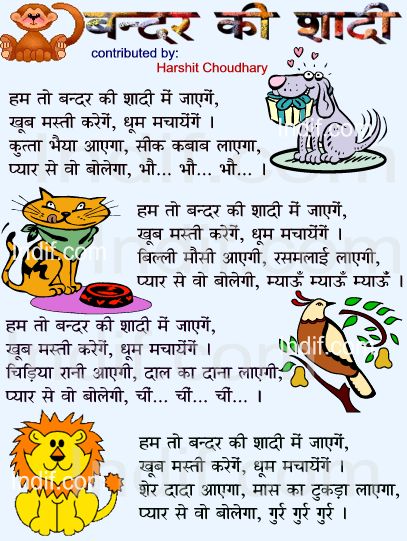 बन्दर की शादी
contributed by:
Harshit Choudhary
हम तो बन्दर की शादी में जाएगें,
खूब मस्ती करेगें, धूम मचायेगें ।
कुत्ता भैया आएगा, सीक कबाब लाएगा,
प्यार से वो बोलेगा, भौ... भौ... भौ... ।
हम तो बन्दर की शादी में जाएगें,
खूब मस्ती करेगें, धूम मचायेगें ।
बिल्ली मौसी आएगी, रसमलाई लाएगी,
प्यार से वो बोलेगी, म्याऊँ म्याऊँ म्याऊँ ।
हम तो बन्दर की शादी में जाएगें,
खूब मस्ती करेगें, धूम मचायेगें ।
चिड़िया रानी आएगी, दाल का दाना लाएगी,
प्यार से वो बोलेगी, चीं... चीं... चीं... ।
हम तो बन्दर की शादी में जाएगें,
खूब मस्ती करेगें, धूम मचायेगें ।
शेर दादा आएगा, मास का टुकड़ा लाएगा,
प्यार से वो बोलेगा, गुर्र गुर्र गुर्र ।
Indif.com
Indif.com
Indif.com
Indif.com